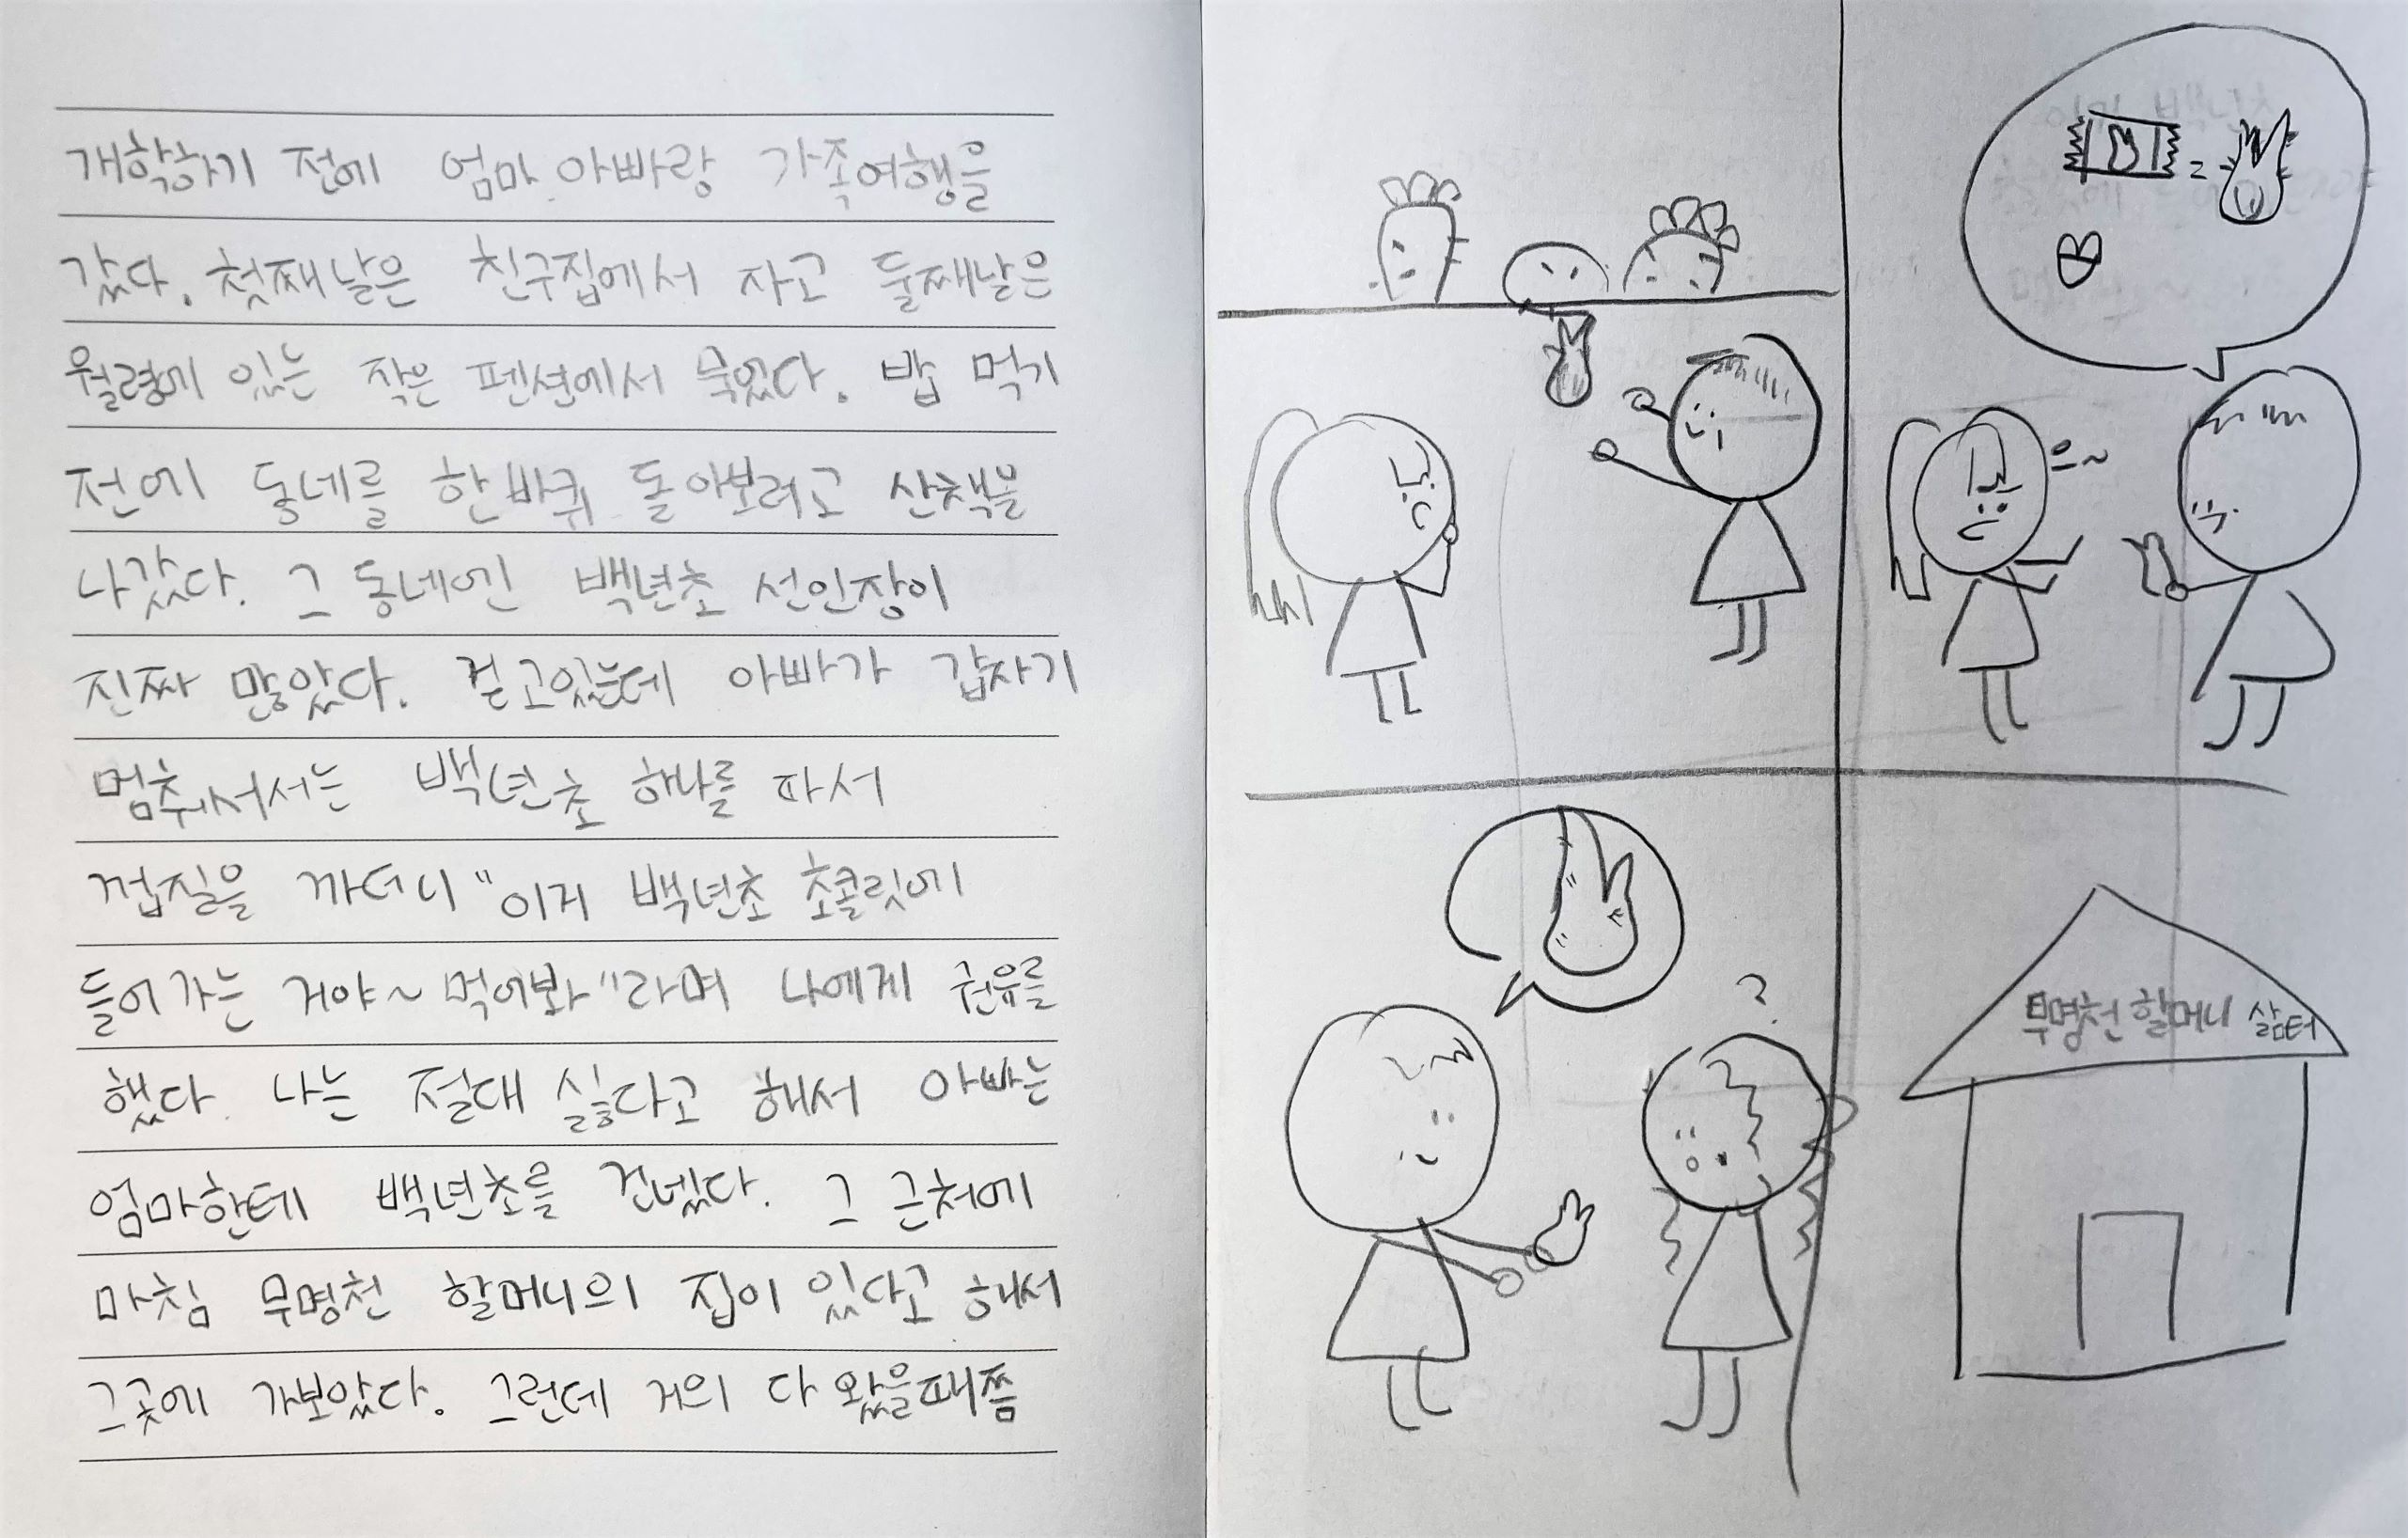 개학하기 전에 엄마 아빠랑 가족여행을
갔다. 첫째날은 친구집에서 자고 둘째날은
월령에 있는 작은 펜션에서 묵었다. 밥 먹기
전에 동네를 한바퀴 돌아보려고 산책을
나갔다. 그 동네엔 백년초 선인장이
진짜 많았다. 걷고있는데 아빠가 갑자기
멈춰서서는 백년초 하나를 따서
껍질을 까더니 "이게 백년초 초콜릿에
들어가는 거야~ 먹어봐"라며 나에게 권유를
했다. 나는 절대 싫다고 해서 아빠는
엄마한테 백년초를 건넸다. 그 근처에
마침 무명천 할머니의 집이 있다고 해서
그곳에 가보았다. 그런데 거의 다 왔을때쯤
=
으~
?
무명천 할머니 삶터